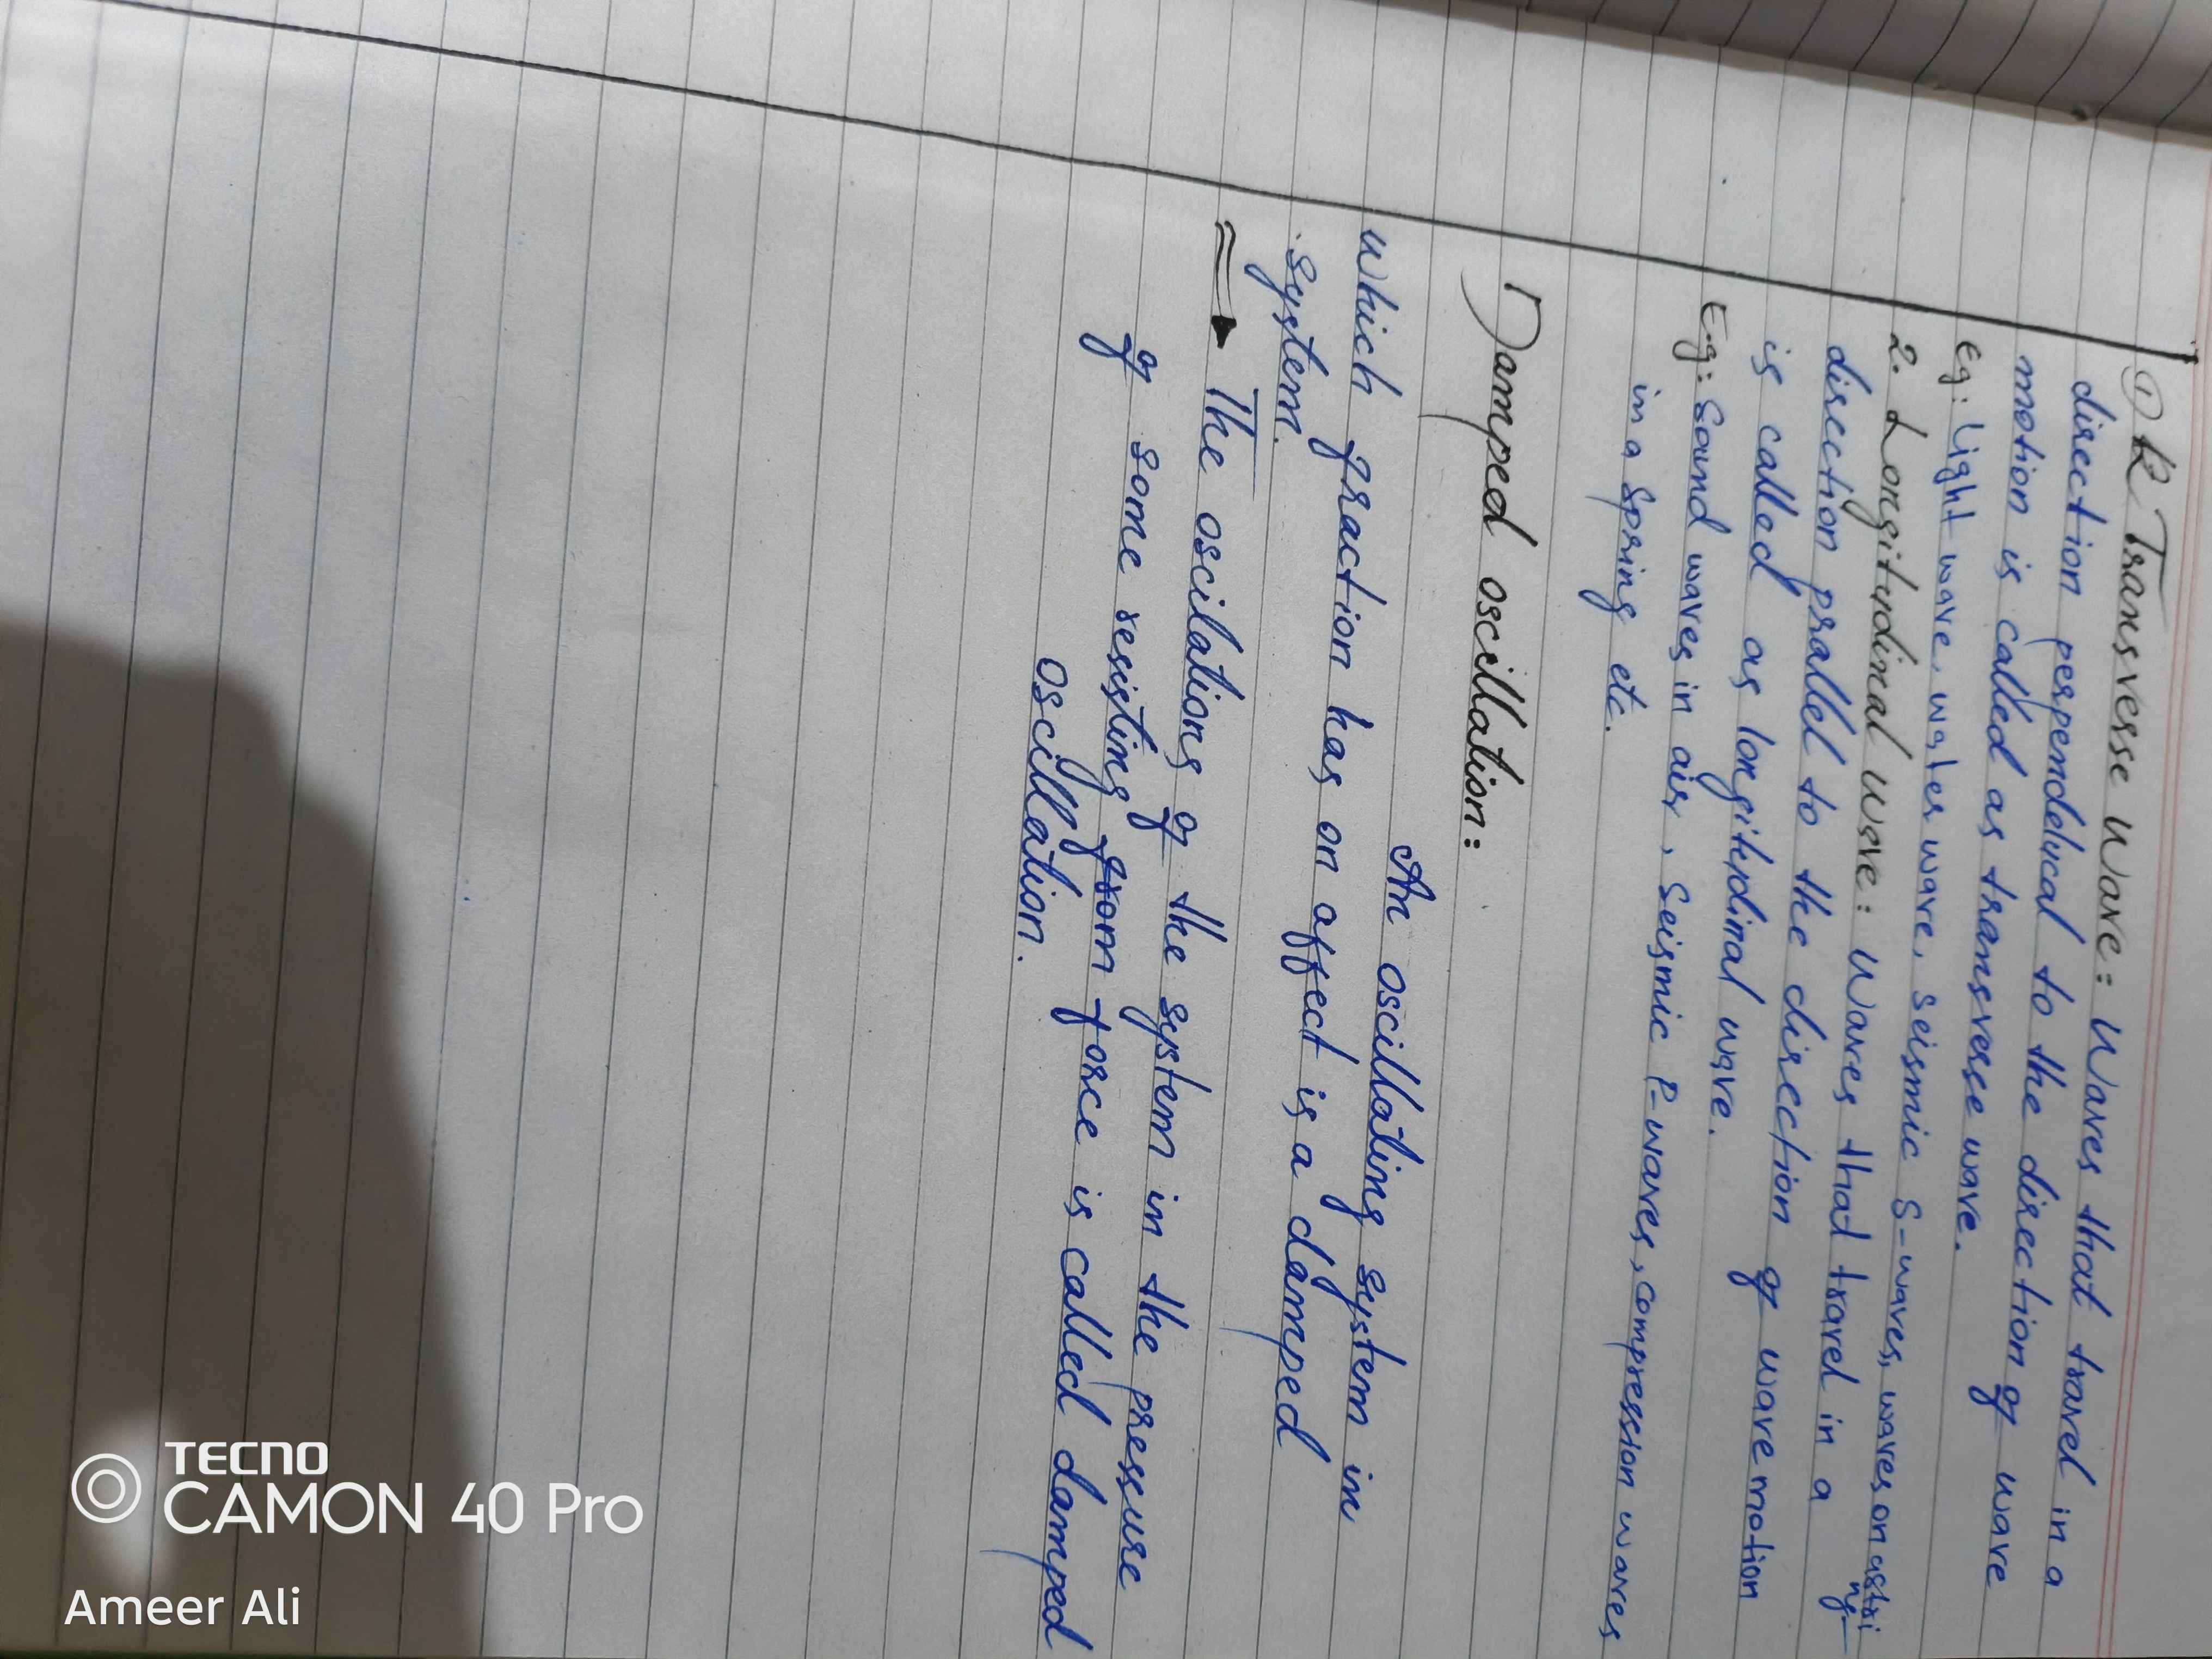 ① R Transverse Wave: Waves that travel in a
direction perpendelucal to the direction of wave
motion is called as transverse wave.
Eg: Light wave, water wave, Seismic S-waves, waves on astri
ng-
2. Longitudinal Wave: Waves that travel in a
direction prallel to the direction of wave motion
is called as longitudinal wave.
E.g: Sound waves in air, Seismic P-waves, compression waves
in a Spring etc.
Damped oscillation:
An oscillating system in
which fraction has on affect is a damped
system.
⇒ The oscilations of the system in the pressure
of some resisting from force is called damped
oscillation.
TECNO
CAMON 40 Pro
Ameer Ali